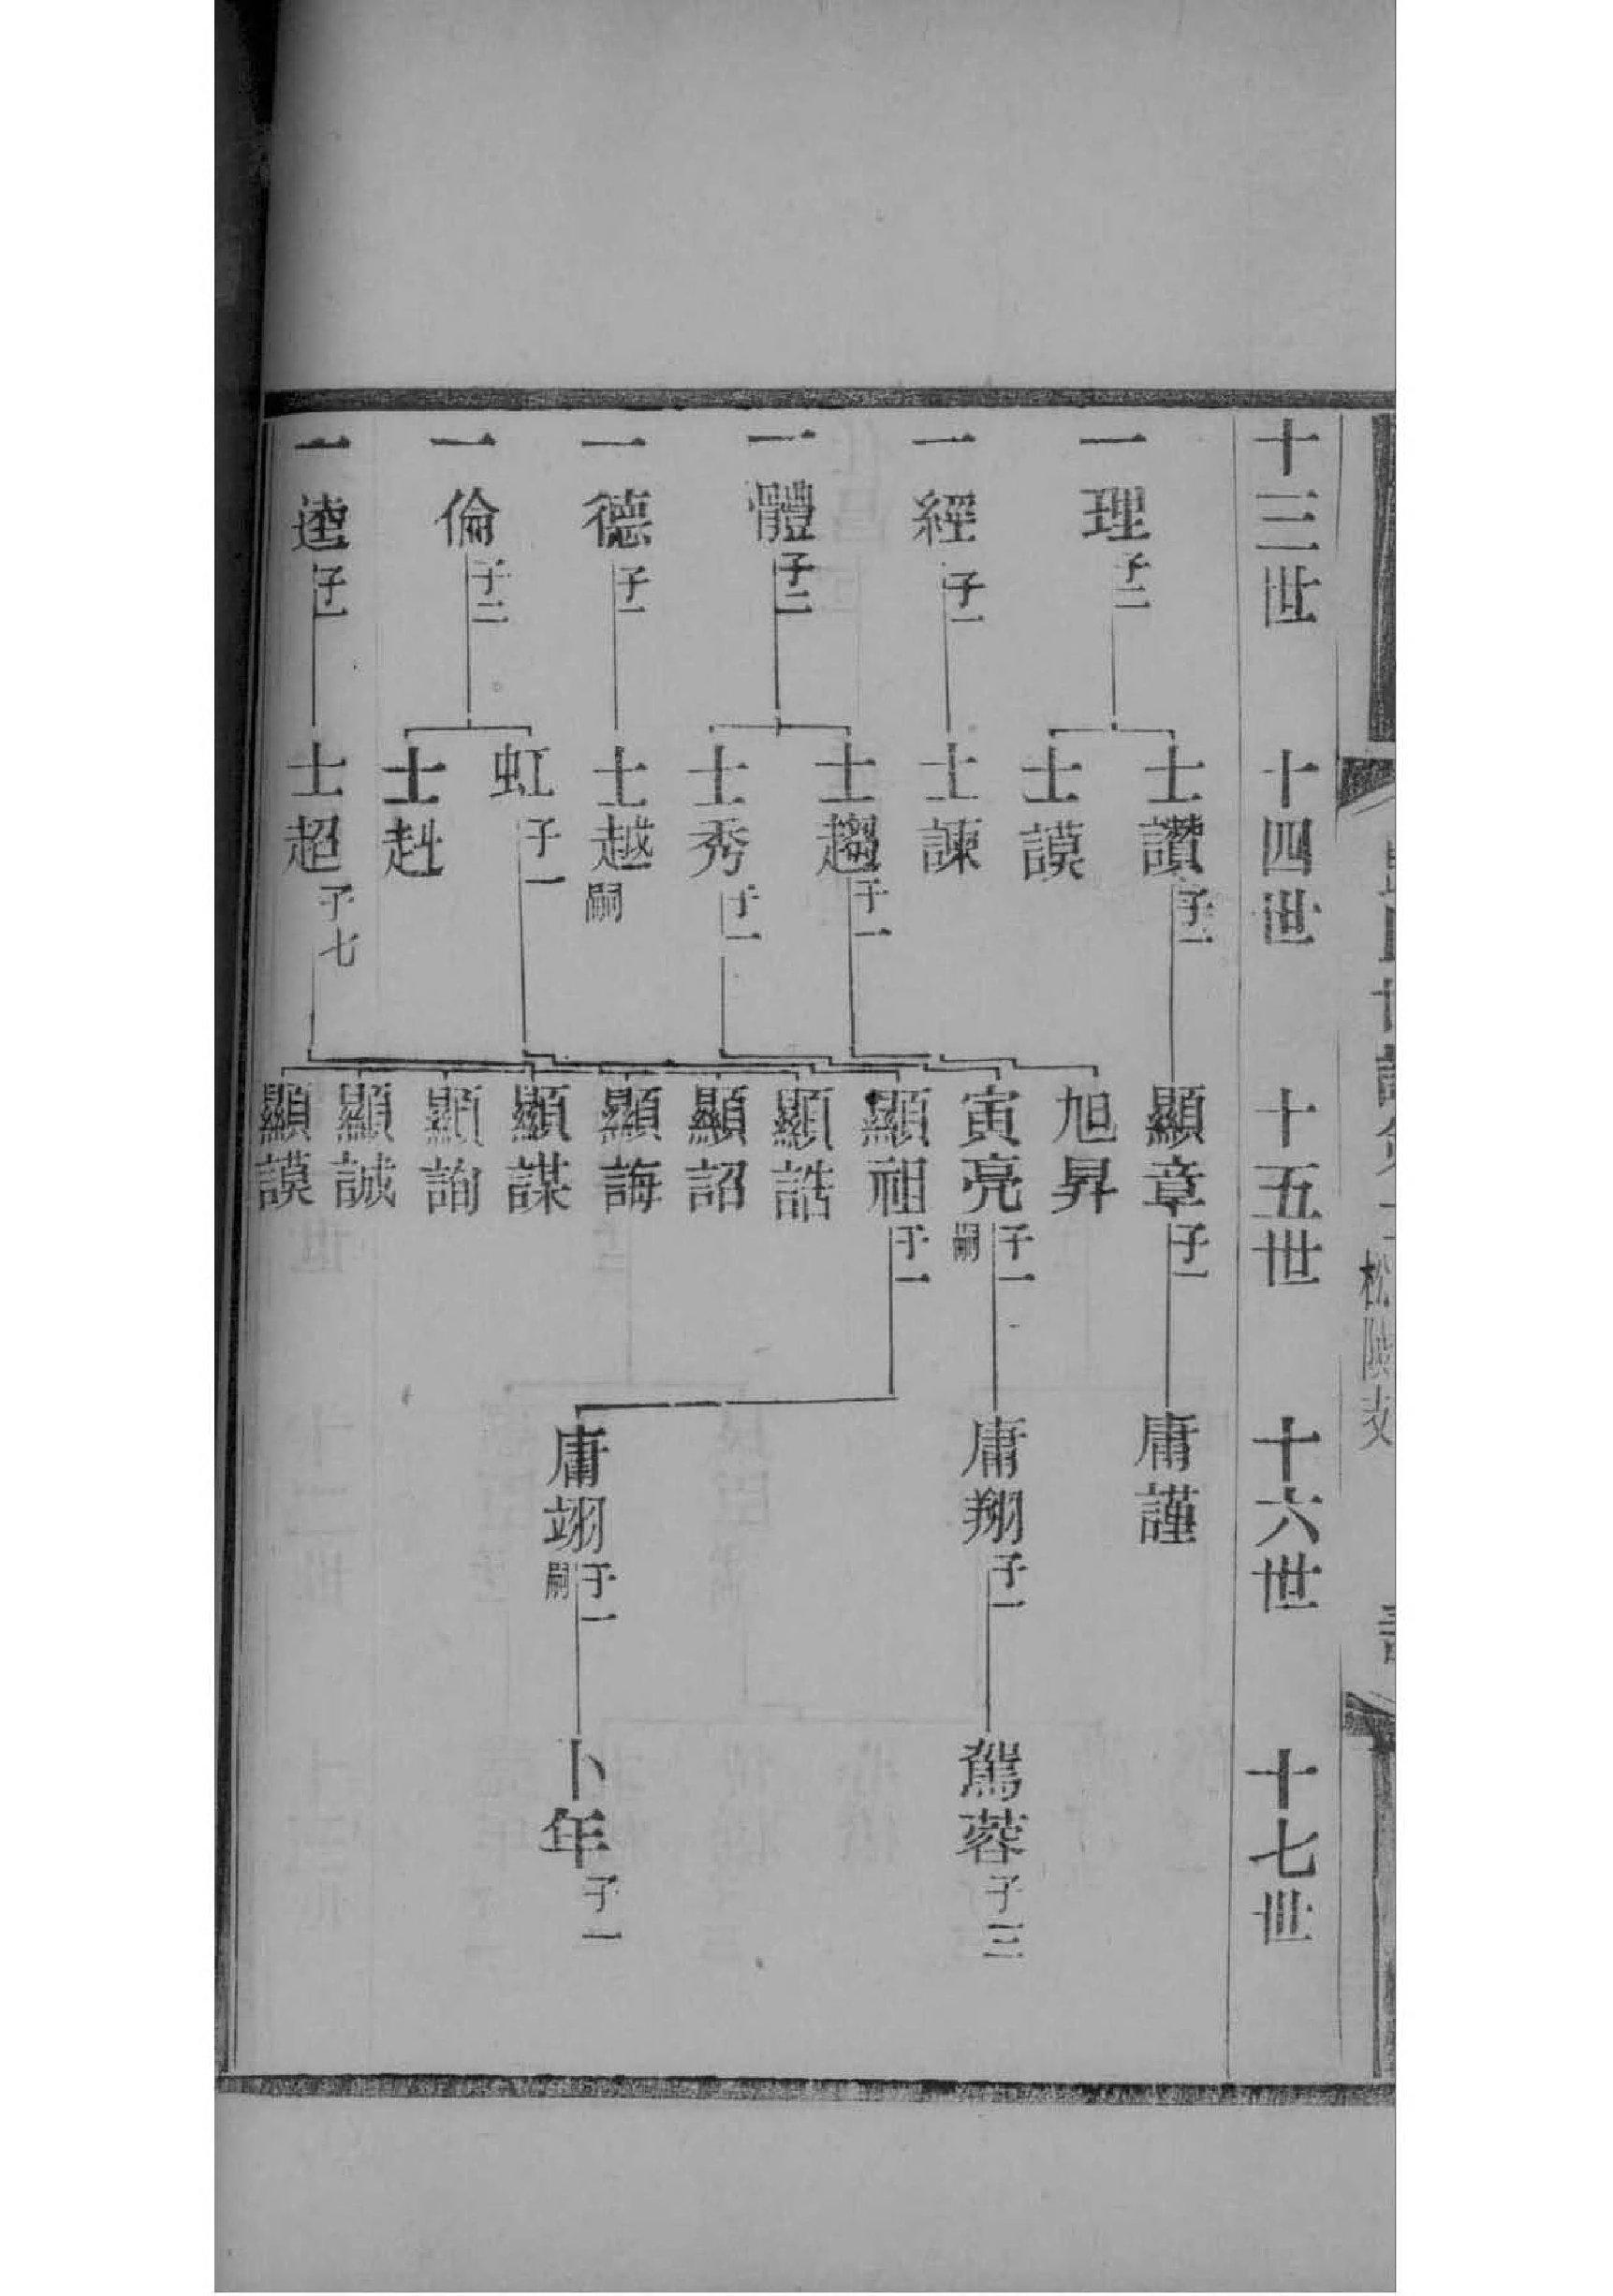 松陵支
十三世
十四世
十五世
十六世
十七世
一理 子二
一經 子一
一體 子二
一德 子一
一倫 子二
一逵 子一
士讚 子一
士謨
士諫
士趨 子一
士秀 子一
士越 嗣
虹 子一
士赳
士超 子七
顯章 子一
旭昇
寅亮 子一 嗣
顯祖 子一
顯誥
顯詔
顯誨
顯謀
顯詢
顯誠
顯謨
庸謹
庸翔 子一
庸翊 子一 嗣
駕蓉 子三
卜年 子一